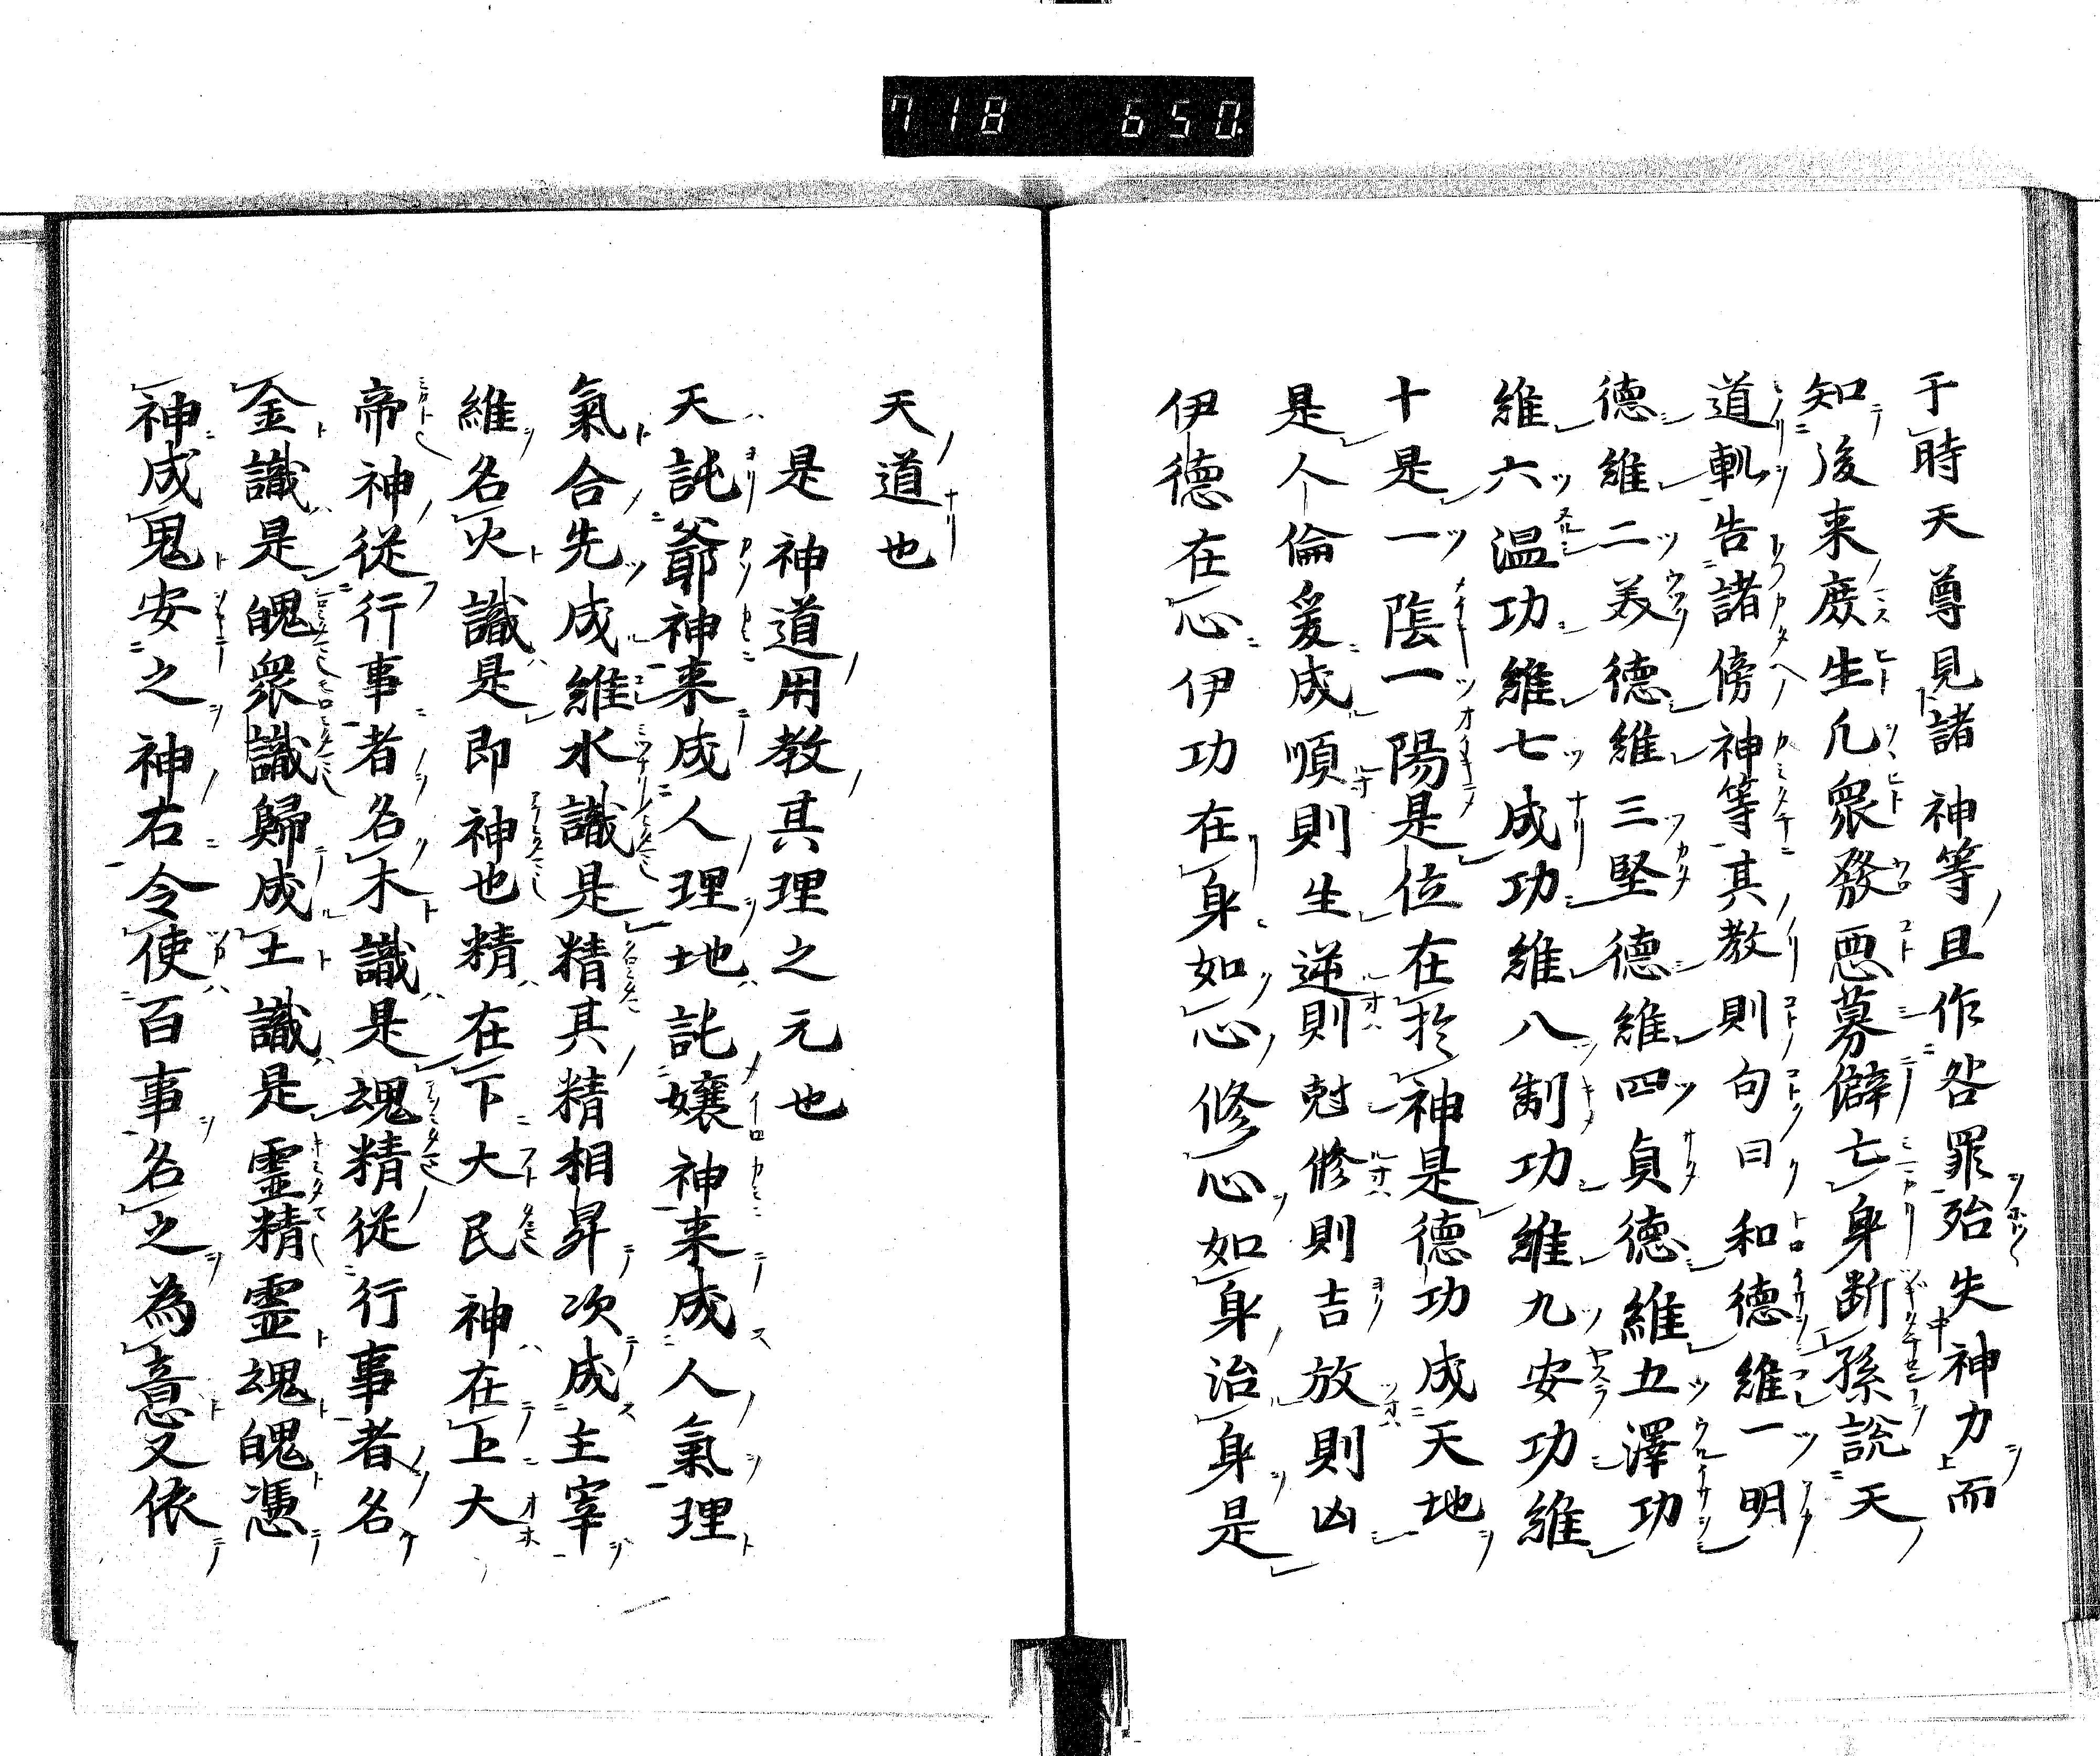 718 650.
于時天尊見諸神等且作咎罪殆失神力而
知後来庶生凢衆發悪募僻亡身断孫説天
道軌告諸傍神等其教則句曰和德維一明
德維二美德維三堅德維四貞德維五澤功
維六温功維七成功維八制功維九安功維
十是一陰一陽是位在於神是德功成天地
是人倫爰成順則生逆則尅修則吉放則凶
伊德在心伊功在身如心修心如身治身是
天道也
是神道用教其理之元也
天託爺神来成人理地託孃神来成人氣理
氣合先成維水識是精其精相昇次成主宰
維名火識是即神也精在下大民神在上大
帝神従行事者名木識是魂精従行事者名
金識是魄衆識歸成土識是霊精霊魂魄憑
神成鬼安之神右令使百事名之為意又依